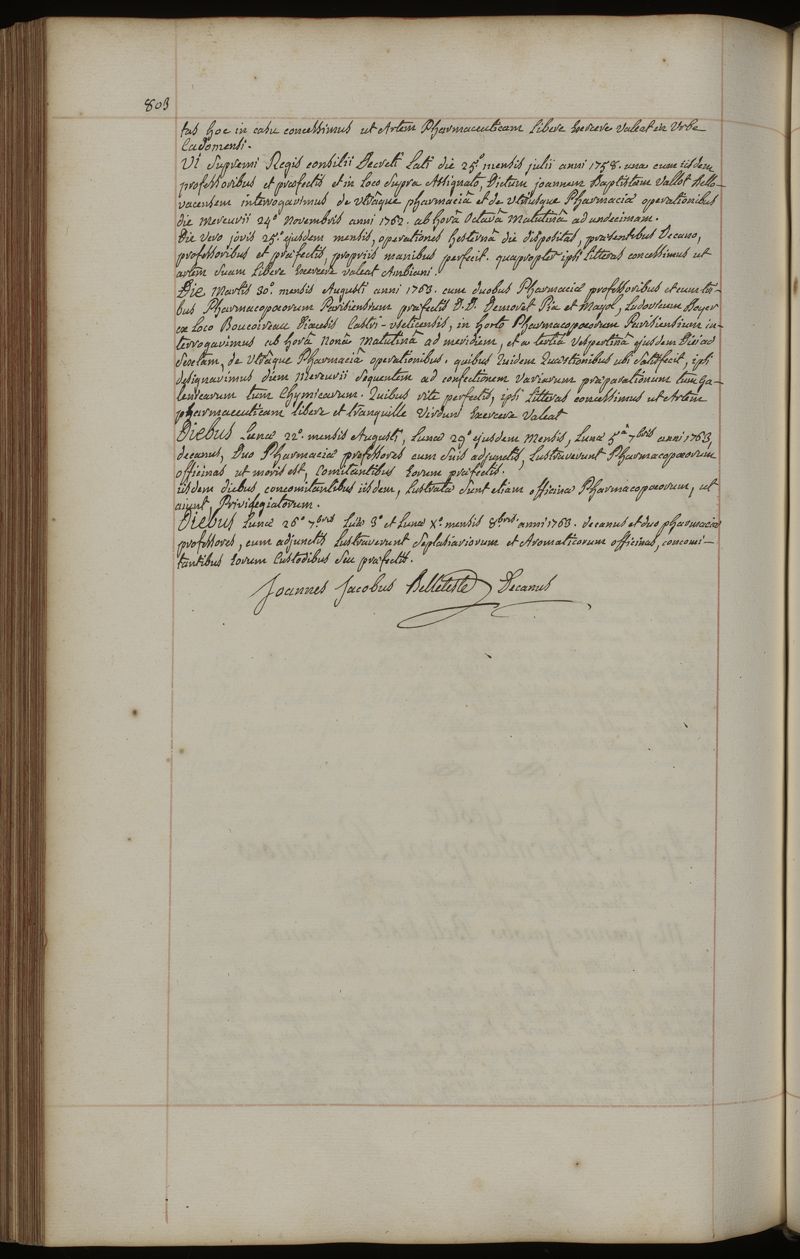 803
tas hoc in casu concessimus ut Artem Pharmaceuticam Libere Exercere Valeat in Urbe
Cadomensi.
Vi Supremi Regis consilii Decreti Lati die 25ª mensis julii anni 1758. una cum iisdem
professoribus et præfectis et in Loco Supra Assignato, Dictum joannem Baptistam Vallot Bello-
vacensem interrogavimus de Utrâque pharmaciâ et de Utriusque Pharmaciæ operationibus
die Mercurii 24ª Novembris anni 1762. ab horâ Octavâ Matutinâ ad undecimam.
Die Vero jovis 25ª ejusdem mensis, operationes hesternâ die dispositas, præsentibus Decano,
professoribus et præfectis, propriis manibus perfecit. quapropter ipsi Litteras concessimus ut
artem Suam Libere Exercere valeat Ambiani.
Die Martis 30ª mensis Augusti anni 1763. cum duobus Pharmaciæ professoribus et cum tri-
bus Pharmacopæorum Parisiensium præfectis D.D. Demoret Pia et Mayol, Ludovicum Boyer
ex Loco Boucoireau Diæcesis Castri-Uselicensis, in horto Pharmacopæorum Parisiensium in-
terrogavimus ab horâ Nonâ Matutinâ ad meridiem, et a tertiâ Vespertinâ ejusdem Diei ad
Sextam, de Utrâque Pharmaciæ operationibus. quibus Quidem Quæstionibus ubi Satisfecit, ipsi
designavimus diem Mercurii Sequentem ad confectionem Variarum præparationum tum Ga-
lenicarum tum Chymicarum. Quibus rite perfectis, ipsi Litteras concessimus ut Artem
pharmaceuticam libere et tranquille Virduni Exercere Valeat
Diebus Lunæ 22ª mensis Augusti, Lunæ 29ª ejusdem Mensis, Lunæ 5ª 7bris anni 1763,
decanus, Duo Pharmaciæ professores cum Suis adjunctis, Lustraverunt Pharmacopæorum
officinas ut moris est, Comitantibus Eorum præfectis.
iisdem diebus concomitantibus iisdem, Lustratæ Sunt etiam officinæ Pharmacopæorum, ut
aiunt, Privilegiatorum.
Diebus Lunæ 26ª 7bris Lunæ 3ª et Lunæ Xª mensis 8bris. anni 1763. decanus et duo pharmaciæ
professores, cum adjunctis Lustraverunt Seplasiariorum et Aromaticorum officinas, concomi-
tantibus Eorum Custodibus Seu præfectis.
Joannes Jacobus Belleteste Decanus